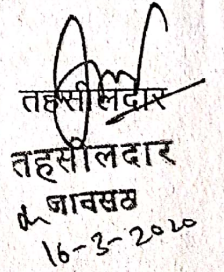 तहसीलदार
तहसीलदार
जावसठ
16-3-2020